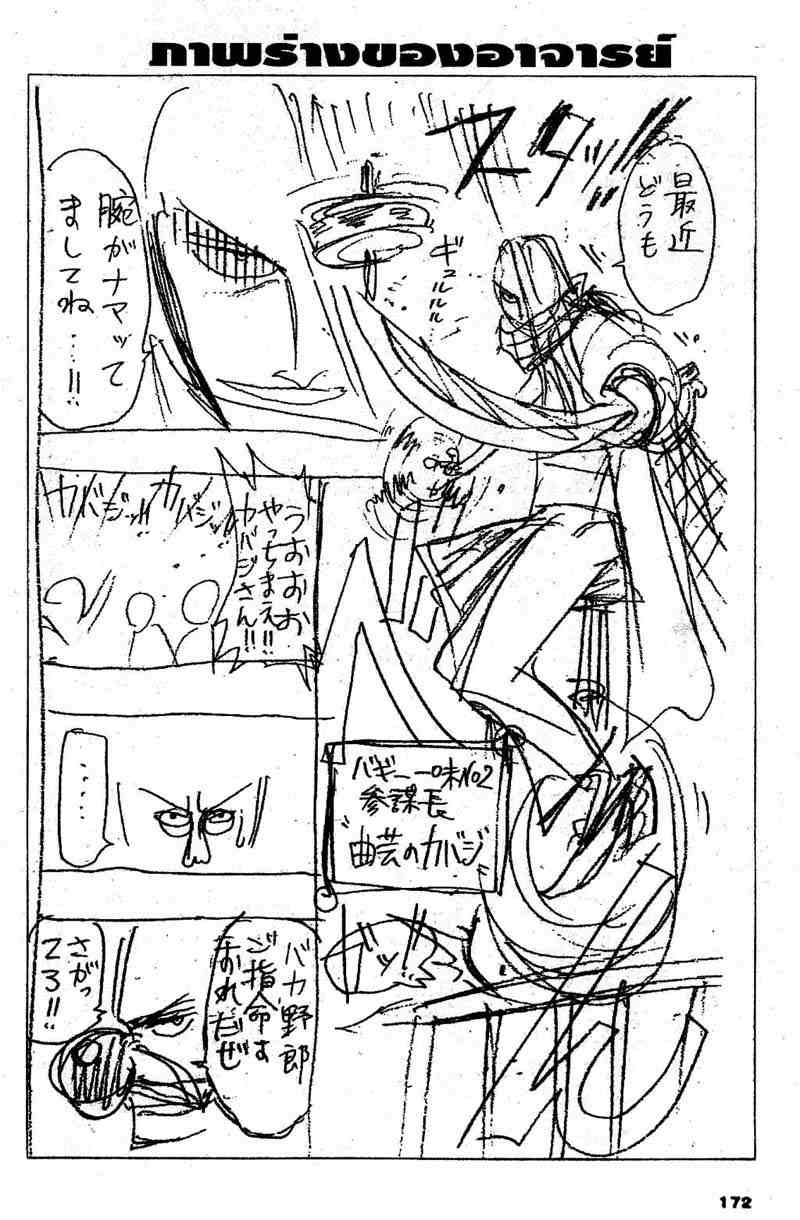 ภาพร่างของอาจารย์
スタッ!!
最近
どうも
ギュルルル
腕がナマッて
ましてね…!!
うおおお
やっちまえ!!
カバジさん!!
カバジッ!!
カバジッ!!
バギー一味No2
参謀長
"曲芸のカバジ"
……
バカ野郎
ご指命は
おれだぜ
さがっ
てろ!!
172